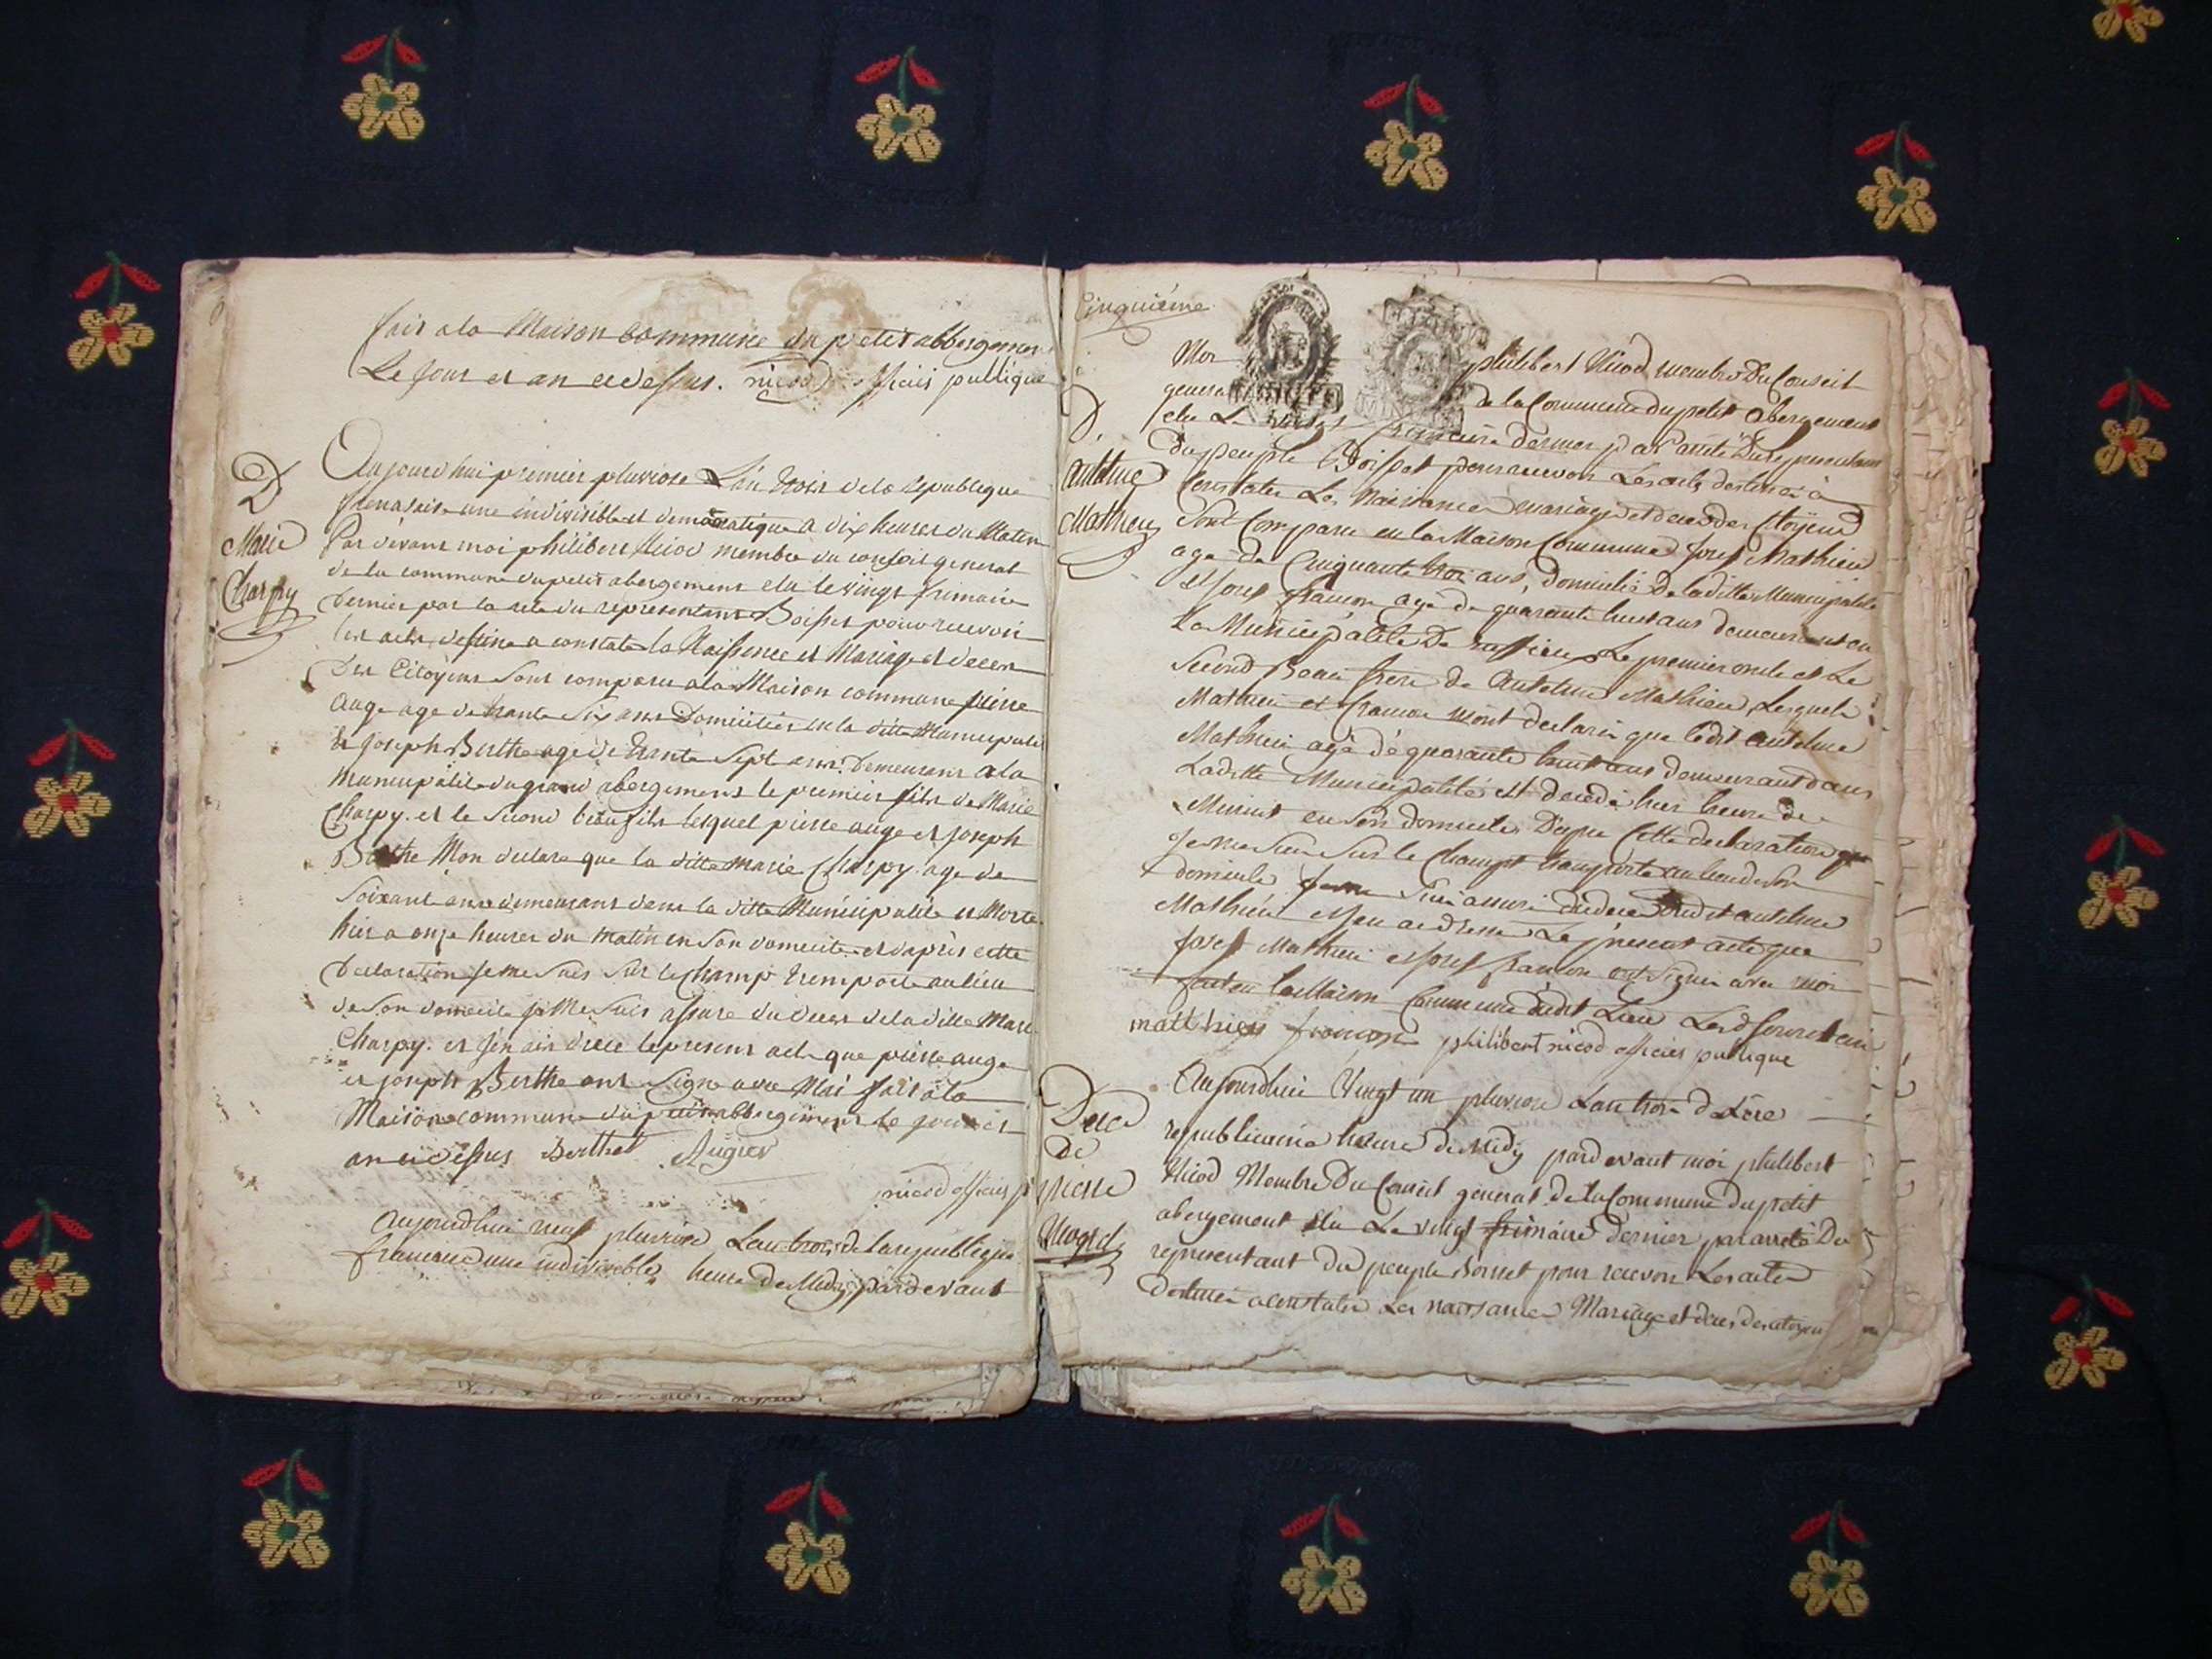 fait ala Maison commune du petit abbergement
Le Jour et an cidessus. nicod officié publique
D
Marie
Charpy
Aujourdhui premier pluviose L'an trois dela Republique
francaise une indivisible et democratique a dix heures du Matin
Par devant moi philibert Nicod membre du conseil general
de la commune dupetit abergement elu le vingt frimaire
dernier par la rete du representant Boisset pour recevoir
les acte destine a constate la Naissence et Mariage et deces
Des Citoyens sont comparu ala Maison commune pierre
auge age de trante six ans Domicilies en la ditte Municipalite
Et Joseph Berthe age de trante Sept ans Demeurant ala
Municipalite du grand abergement le premier fils de Marie
Charpy. et le second beaufils lequel pierre auge et Joseph
Berthe Mon declare que la ditte marie Charpy age de
Soixante ans demeurant dans la ditte Municipalite et Morte
hier a onze heures du matin en son domicile et dapres cette
Declaration Je me suis sur le champ transporte au lieu
de son domicile Je Me suis assure du deces dela ditte Marie
Charpy. et J'en ais drece le present acte que pierre auge
et joseph Berthe ont signe avec Moi fait ala
Maison commune du petit abbergement le jour et
an cidessus Berthet Augier
nicod officié p
Aujourdhui neuf pluviose Lan trois de la republique
francaise une indivisible, heure de Midy, pardevant
Cinquième
D.
Antelme
Mathieu
Moi philibert Nicod membre du Conseil
general de la Commune du petit abergement
elu Le frimaire dernier par arreté du representant
du peuple Boisset pour recevoir Les acte destinés à
Constater Les Naissances mariage et deces des Citoyens
Sont Comparu en la Maison Commune Josef Mathieu
agé de Cinquante trois ans, domicilié De laditte Municipalité
et Josef francon agé de quarante huit ans demeurant en
La Municipalité De Le premier oncle et Le
Second Beau frere de Antelme Mathieu, Lesquels
Mathieu et francon mont declarés que ledit Antelme
Mathieu agé de quarante huit ans demeurant dans
Laditte Municipalité est decedé hier heure de
Minuit en son domicile D'apres Cette declaration
Je me suis sur le Champt transporté au lieu de son
domicile assuré du deces dudit antelme
Mathieu et j'en ai dressé Le present acte que
Josef Mathieu et Josef francon ont signés avec moi
fait en la Maison Commune dudit Lieu Lesd Jour et an
matthieu francon philibert nicod officiés publique
Dece
de
pierre
Aujourdhui Vingt un pluviose Lan trois de L'ére
republicaine heure de Midy pardevant moi philibert
Nicod Membre Du Conseil general de la Commune du petit
abergement elu Le vingt frimaire dernier par arreté Du
representant du peuple Boisset pour recevoir Les actes
destinés a Constater Les naissances Mariage et deces des citoyens